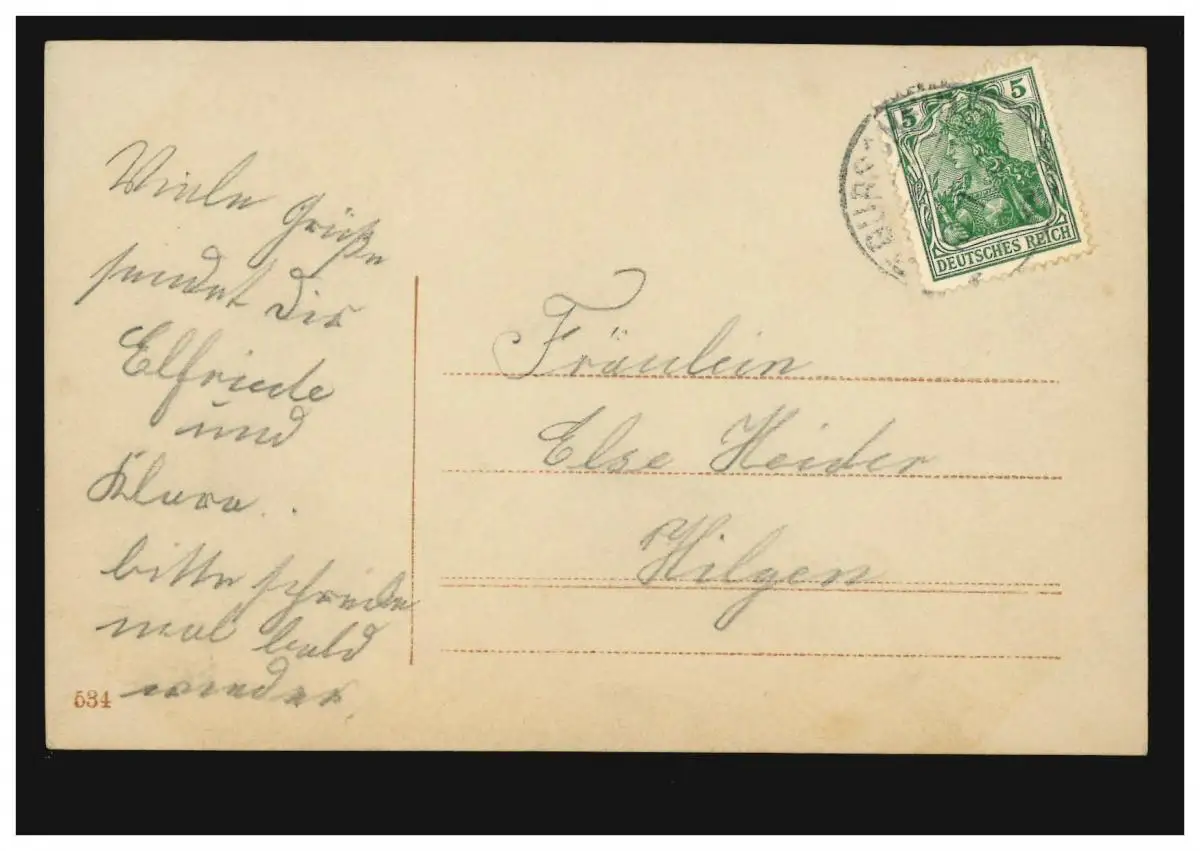 Viele Grüße
sendet dir
Elfriede
und
Klara..
bitte schreibe
mal bald
wieder.
534
5 5
DEUTSCHES REICH
BURG
Fräulein
Else Heider
Hilgen